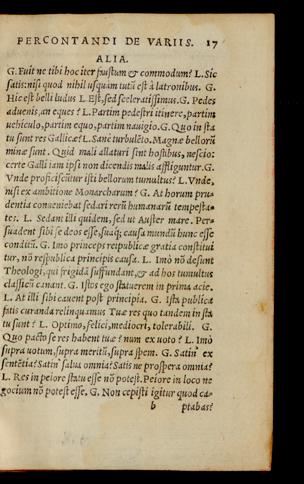 PERCONTANDI DE VARIIS. 17
ALIA.
G. Fuit ne tibi hoc iter faustum & commodum? L. Sic
satis: nisi quòd nihil usquàm tutū est à latronibus. G.
Hic est belli ludus L Est, sed sceleratissimus. G. Pedes
aduenis, an eques? L. Partim pedestri itinere, partim
uehiculo, partim equo, partim nauigio. G. Quo in sta
tu sunt res Gallicæ? L. Sanè turbulētæ. Magnæ bellorū
minæ sunt. Quid mali allaturi sint hostibus, nescio:
certe Galli iam ipsi non dicendis malis affliguntur. G.
Vnde proficiscūtur isti bellorum tumultus? L. Vnde,
nisi ex ambitione Monarcharum? G. At horum pru-
dentia conueniebat sedari rerū humanarū tempesta-
tes. L. Sedant illi quidem, sed ut Auster mare. Per-
suadent sibi se deos esse, suaq; causa mundū hunc esse
conditū. G. Imo princeps reipublicæ gratia constitui
tur, nō respublica principis causa. L. Imò nō desunt
Theologi, qui frigidā suffundant, & ad hos tumultus
classicū canant. G. Istos ego statuerem in prima acie.
L. At illi sibi cauent post principia. G. Ista publica
fatis curanda relinquamus Tuæ res quo tandem in sta
tu sunt? L. Optimo, felici, mediocri, tolerabili. G.
Quo pacto se res habent tuæ? num ex uoto? L. Imò
supra uotum, supra meritū, supra spem. G. Satin' ex
sentētia? Satin' salua omnia? Satis ne prospera omnia?
L. Res in peiore statu esse nō potest. Peiore in loco ne
gocium nō potest esse. G. Non cepisti igitur quod ca-
b ptabas?